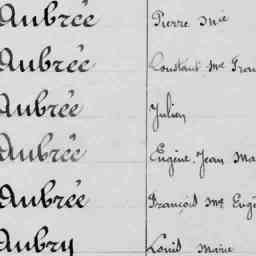 Aubrée Pierre Mie
Aubrée Constant Me Fran
Aubrée Julien
Aubrée Eugène Jean Ma
Aubrée François Me Eugè
Aubry Louis Marie